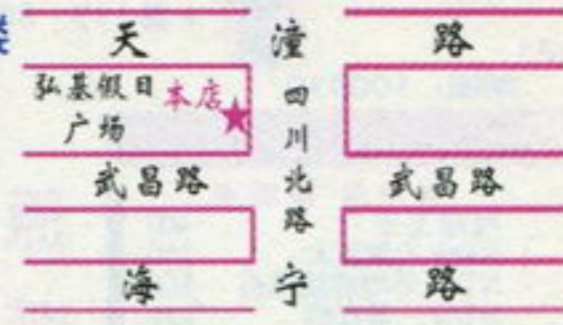 楼
天潼路
弘基假日
广场
本店
四川北路
武昌路
武昌路
海宁路